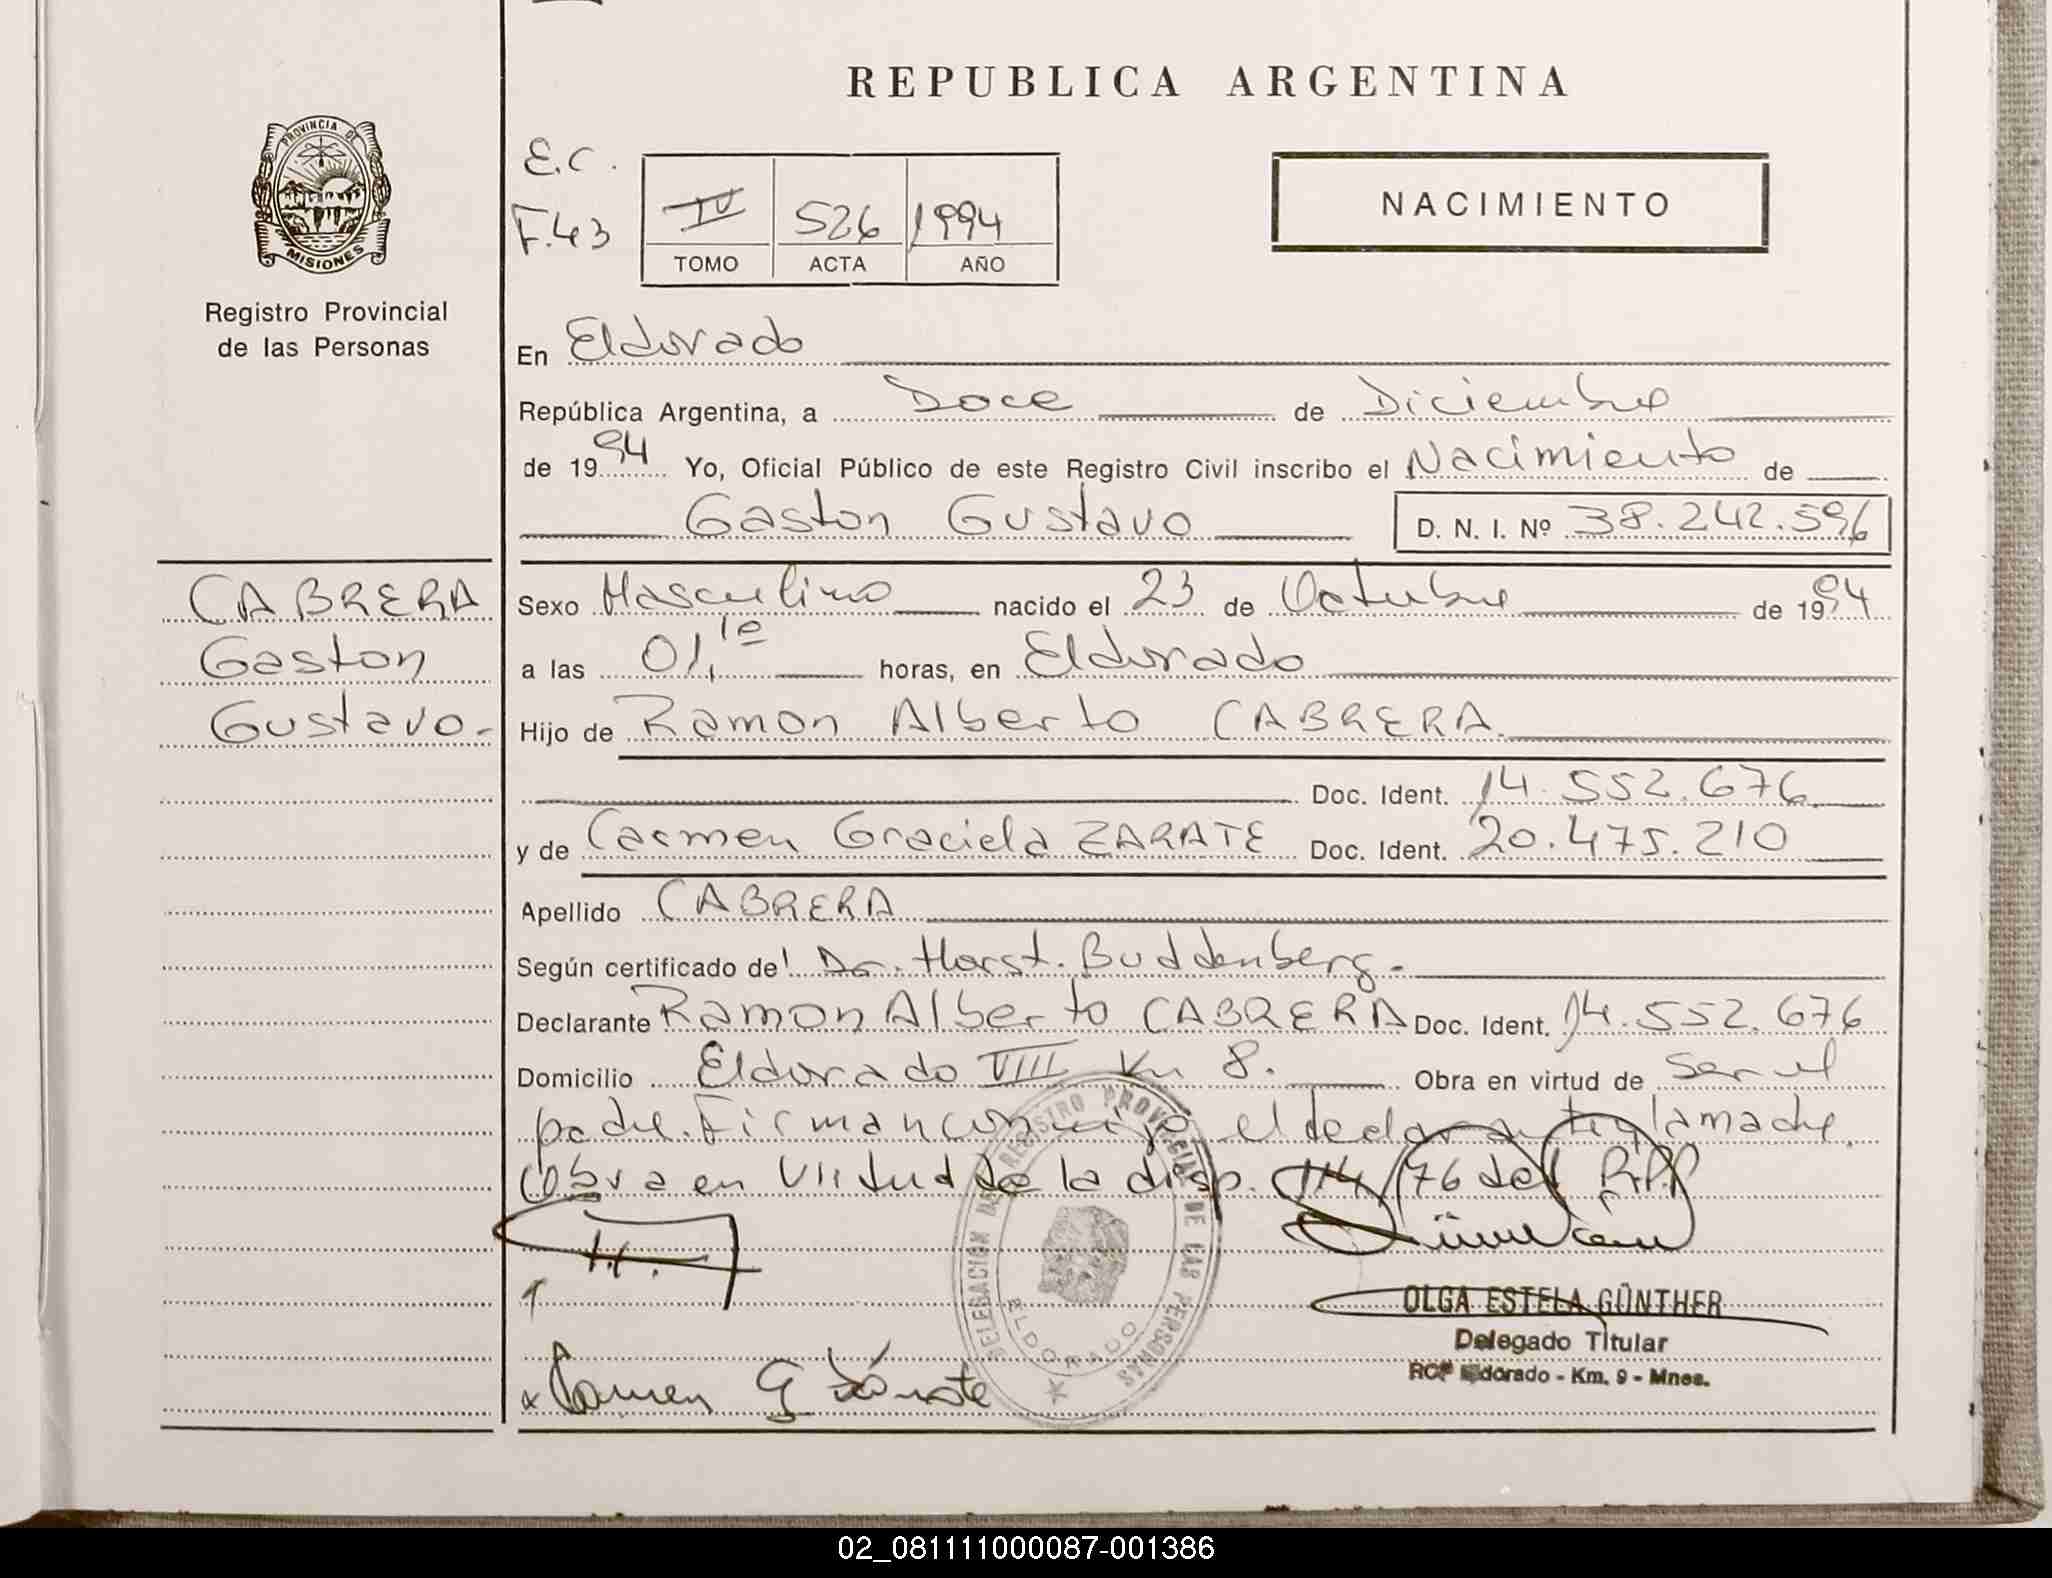 REPUBLICA ARGENTINA
PROVINCIA DE
MISIONES
Registro Provincial
de las Personas
E.C.
F.43
IV 526 1994
TOMO ACTA AÑO
NACIMIENTO
En Eldorado
República Argentina, a Doce de Diciembre
de 1994 Yo, Oficial Público de este Registro Civil inscribo el Nacimiento de
Gaston Gustavo D. N. I. Nº 38.242.596
CABRERA
Gaston
Gustavo.-
Sexo Masculino nacido el 23 de Octubre de 1994
a las 01,10 horas, en Eldorado
Hijo de Ramon Alberto CABRERA.
Doc. Ident. 14.552.676
y de Carmen Graciela ZARATE Doc. Ident. 20.475.210
Apellido CABRERA
Según certificado de Dr. Horst. Buddenberg.-
Declarante Ramon Alberto CABRERA Doc. Ident. 14.552.676
Domicilio Eldorado VIII Km 8. Obra en virtud de ser el
padre. Firman conmigo el declarante y la madre.
Obra en virtud de la disp. 114/76 del R.P.P
DELEGACION DEL REGISTRO PROVINCIAL DE LAS PERSONAS
ELDORADO
OLGA ESTELA GÜNTHER
Delegado Titular
RCP Eldorado - Km. 9 - Mnes.
Carmen G Zárate
02_081111000087-001386